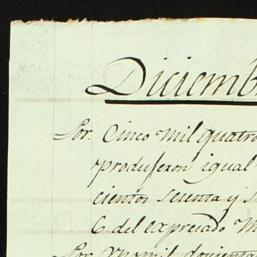 Diciemb
Por. Cinco mil quatro
produjeron igual
cientos setenta y s
6 del expresado M
Por. Un mil doscienta